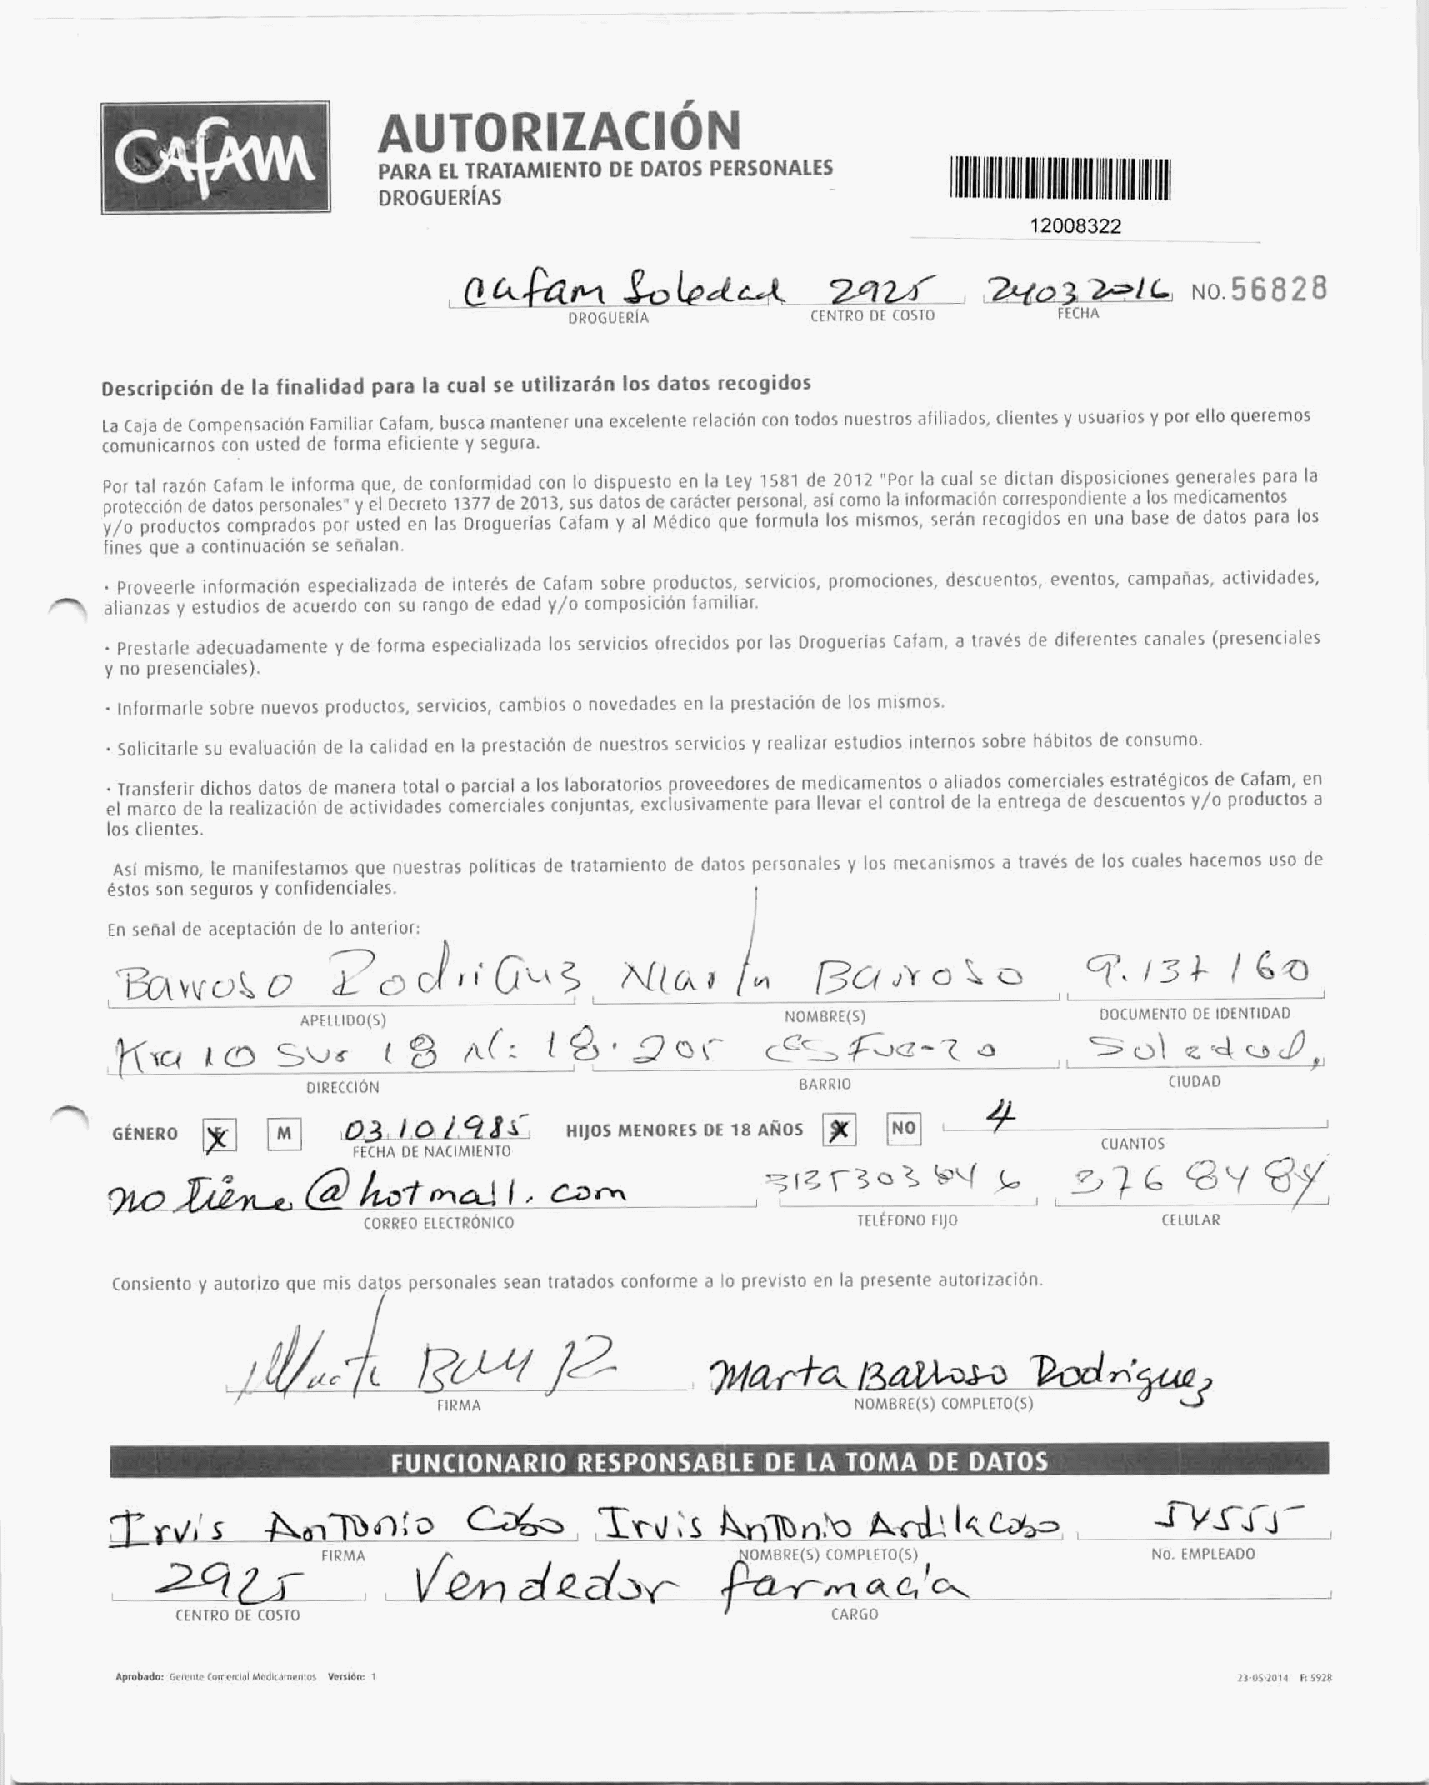 CAFAM
AUTORIZACIÓN
PARA EL TRATAMIENTO DE DATOS PERSONALES
DROGUERÍAS
12008322
Cafam Soledad 2925 24032016 NO.56828
DROGUERÍA CENTRO DE COSTO FECHA
Descripción de la finalidad para la cual se utilizarán los datos recogidos
La Caja de Compensación Familiar Cafam, busca mantener una excelente relación con todos nuestros afiliados, clientes y usuarios y por ello queremos
comunicarnos con usted de forma eficiente y segura.
Por tal razón Cafam le informa que, de conformidad con lo dispuesto en la Ley 1581 de 2012 "Por la cual se dictan disposiciones generales para la
protección de datos personales" y el Decreto 1377 de 2013, sus datos de carácter personal, así como la información correspondiente a los medicamentos
y/o productos comprados por usted en las Droguerías Cafam y al Médico que formula los mismos, serán recogidos en una base de datos para los
fines que a continuación se señalan.
· Proveerle información especializada de interés de Cafam sobre productos, servicios, promociones, descuentos, eventos, campañas, actividades,
alianzas y estudios de acuerdo con su rango de edad y/o composición familiar.
· Prestarle adecuadamente y de forma especializada los servicios ofrecidos por las Droguerías Cafam, a través de diferentes canales (presenciales
y no presenciales).
· Informarle sobre nuevos productos, servicios, cambios o novedades en la prestación de los mismos.
· Solicitarle su evaluación de la calidad en la prestación de nuestros servicios y realizar estudios internos sobre hábitos de consumo.
· Transferir dichos datos de manera total o parcial a los laboratorios proveedores de medicamentos o aliados comerciales estratégicos de Cafam, en
el marco de la realización de actividades comerciales conjuntas, exclusivamente para llevar el control de la entrega de descuentos y/o productos a
los clientes.
Así mismo, le manifestamos que nuestras políticas de tratamiento de datos personales y los mecanismos a través de los cuales hacemos uso de
éstos son seguros y confidenciales.
En señal de aceptación de lo anterior:
Barroso Barroso 9.137160
APELLIDO(S) NOMBRE(S) DOCUMENTO DE IDENTIDAD
Kra 10 sur 18 N: 18.205 Soledad
DIRECCIÓN BARRIO CIUDAD
GÉNERO X M 03101985 HIJOS MENORES DE 18 AÑOS X NO 4
FECHA DE NACIMIENTO CUANTOS
no tiene@hotmail.com 3768484
CORREO ELECTRÓNICO TELÉFONO FIJO CELULAR
Consiento y autorizo que mis datos personales sean tratados conforme a lo previsto en la presente autorización.
Marta Barroso Rodriguez
FIRMA NOMBRE(S) COMPLETO(S)
FUNCIONARIO RESPONSABLE DE LA TOMA DE DATOS
Irvis Antonio Cobo Irvis Antonio Ardila Cobo 54555
FIRMA NOMBRE(S) COMPLETO(S) No. EMPLEADO
2925 Vendedor farmacia
CENTRO DE COSTO CARGO
Aprobado: Gerente Comercial Medicamentos Versión: 1 23-05-2014 F: 5928